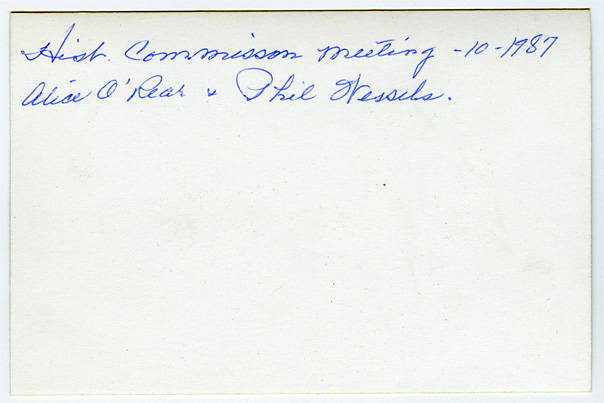 Hist. Commisson meeting -10-1987
Alice O'Rear & Phil Wessels.